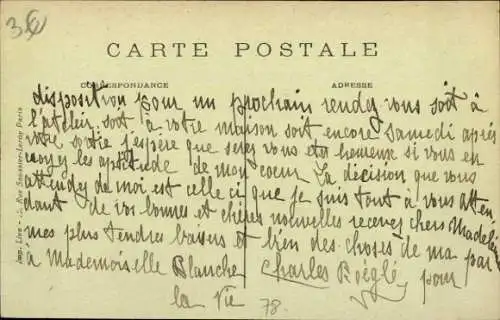 CARTE POSTALE
CORRESPONDANCE
ADRESSE
disposition pour un prochain rendez vous soit à
l'atelier soit à votre maison soit encore samedi après
votre sortie j'espère que serez vous heureuse si vous en
de mon coeur La décision que vous
attendez de moi est celle ci que je suis tout à vous Atten
dant de vos bonnes et chères nouvelles recevez chère Madelei
mes plus tendres baisers et bien des choses de ma par
à Mademoiselle Blanche Charles pour
la vie
78.
Paris